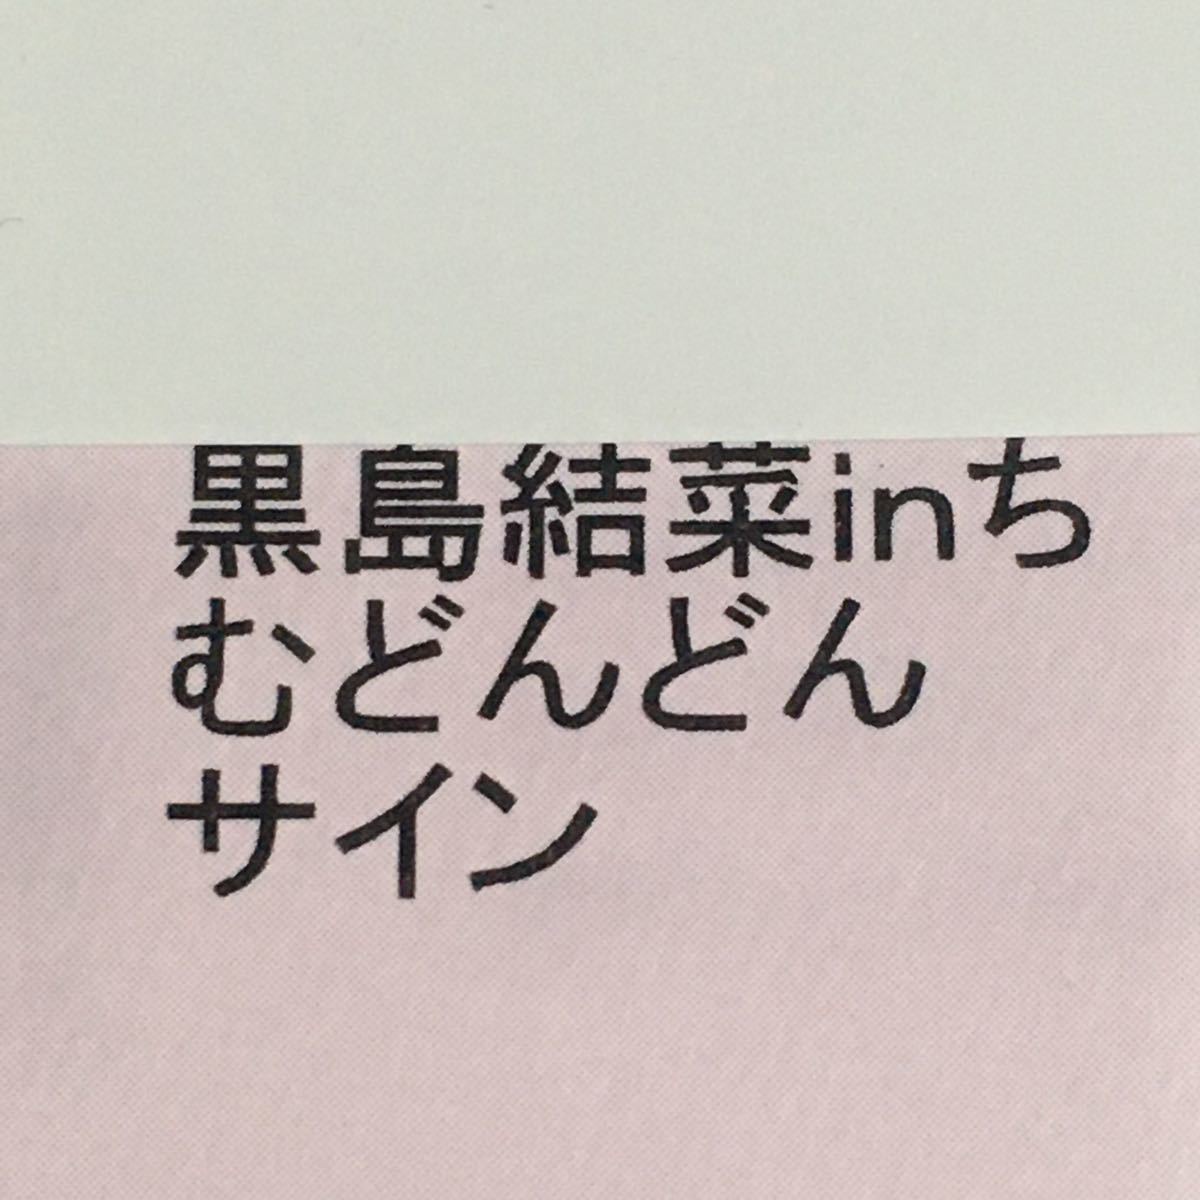 黒島結菜inち
むどんどん
サイン